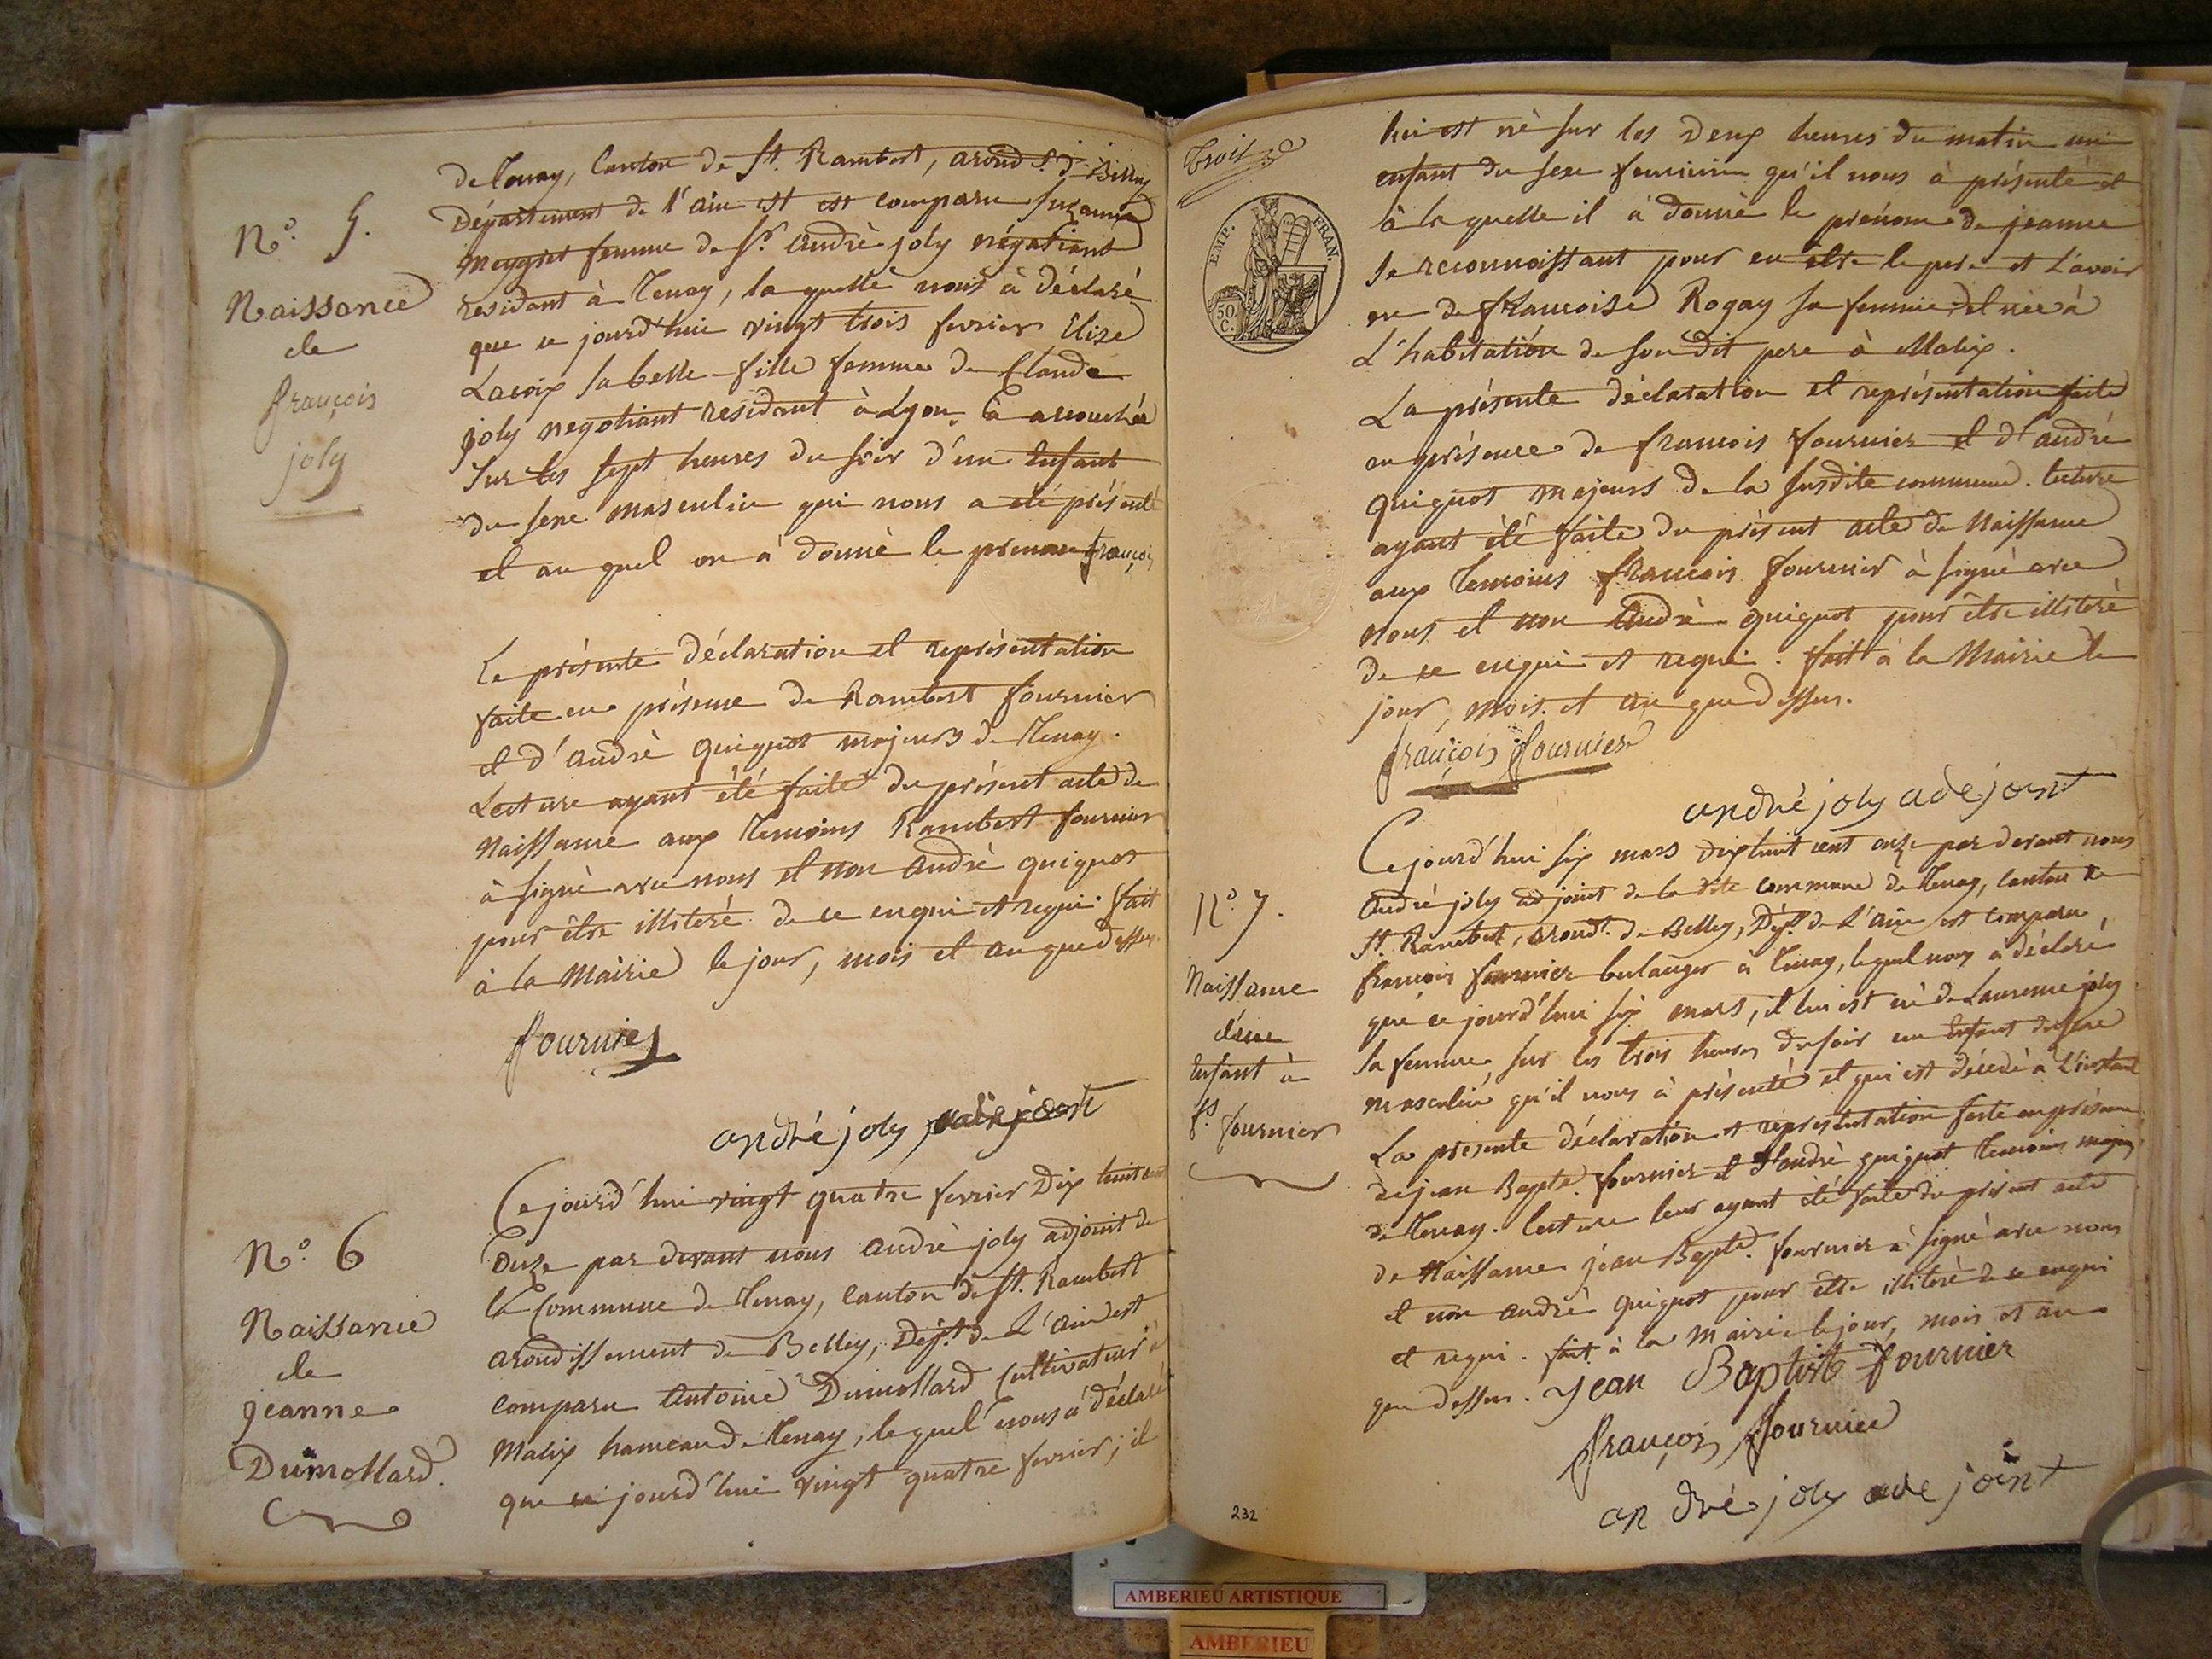 N.° 5.
Naissance
de
françois
joly
de Tenay, Canton de St. Rambert, arond.t de Belley
Département de l'ain est est comparu suzanne
meygret femme de Sr. andrè joly négotiant
residant à Tenay, la quelle nous à déclaré
que ce jourd'hui vingt trois fevrier Elize
Lacroix sa belle-fille femme de Claude
joly negotiant residant à Lyon, à accouchée
Sur les sept heures du soir d'un Enfant
du sexe masculin qui nous a été présenté
et au quel on à donnè le prenom françois
La présente déclaration et représentation
faite en présence de Rambert fournier
et d'andrè quiquot majeurs de Tenay.
Lecture ayant été faite du présent acte de
Naissance aux temoins Rambert fournier
à signè avec nous et non andrè quiquot
pour être illiteré de ce enquis et requi. fait
à la Mairie le jour, mois et an que dessus.
fournier
andré joly adejoint
N.° 6
Naissance
de
jeanne
Dumollard.
Ce jourd'hui vingt quatre fevrier Dix huit cent
Onze par devant nous andrè joly adjoint de
la Commune de Tenay, canton de St. Rambert
arondissement de Belley, Dép.t de L'ain est
comparu antoine Dumollard Cultivateur à
Malix hameau de Tenay, le quel nous à déclaré
que ce jourd'hui vingt quatre fevrier, il
Trois
EMP. FRAN.
50
C.
lui est nè sur les Deux heures du matin un
enfant du sexe feminin qu'il nous à présenté et
à la quelle il à donnè le prénom de jeanne
se reconnoissant pour en être le pere et L'avoir
eu de francoise Rogay sa femme et née à
L'habitation de son dit pere à Malix.
La présente déclaration et représentation faite
en présence de francois fournier et d'andrè
quiquot majeurs de la susdite commune. lecture
ayant été faite du présent acte de Naissance
aux Temoins francois fournier à signè avec
nous et non andrè quiquot pour être illiteré
de ce enquis et requi. fait à la Mairie le
jour, mois et an que dessus.
françois fournier
andré joly adejoint
N.° 7.
Naissance
d'un
Enfant à
f.s fournier
Ce jourd'hui six mars dix huit cent onze par devant nous
andré joly adjoint de la dite commune de Tenay, canton de
St. Rambert, arond.t de Belley, Dép.t de L'ain est comparu
francois fournier bulanger à Tenay, lequel nous a déclaré
que ce jourd'hui six mars, il lui est né de Laurence joly
sa femme, sur les trois heures du soir un Enfant du sexe
masculin qu'il nous à présenté et qui est décedé à L'instant
La presente déclaration et représentation faite en présence
de jean Bapte. fournier et d'andrè quiquot temoins majeurs
de Tenay. lecture leur ayant été faite du présent acte
de Naissance jean Bapte. fournier à signé avec nous
et non andrè quiquot pour être illiteré de ce enqui
et requi. fait à la Mairie le jour, mois et an
que dessus. jean Baptiste fournier
françois fournier
andré joly adejoint
232
AMBERIEU ARTISTIQUE
AMBERIEU